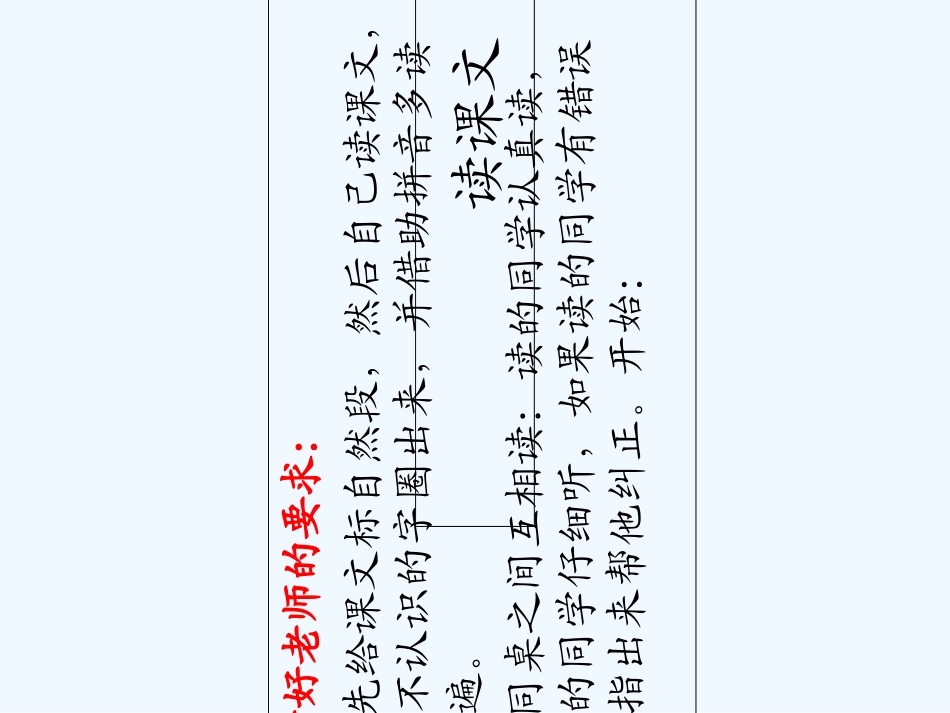 好老师的要求：
先给课文标自然段，然后自己读课文，
不认识的字圈出来，并借助拼音多读
遍。
读课文
同桌之间互相读：读的同学认真读，
的同学仔细听，如果读的同学有错误
指出来帮他纠正。开始：